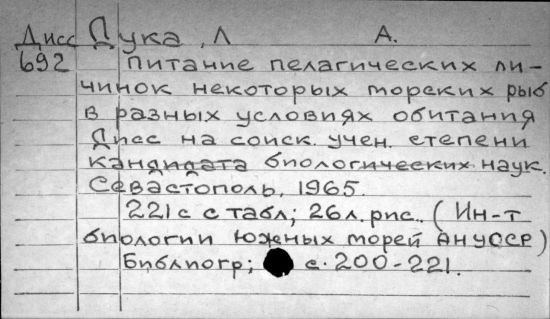 Дисс Дука, Л А.
692 Питание пелагических ли-
чинок некоторых морских рыб
в разных условиях обитания
Дисс на соиск. учен. степени
кандидата биологических наук.
Севастополь, 1965.
221 с с табл; 26 л. рис.. (Ин-т
биологии южных морей АН УССР)
Библиогр; с. 200-221.